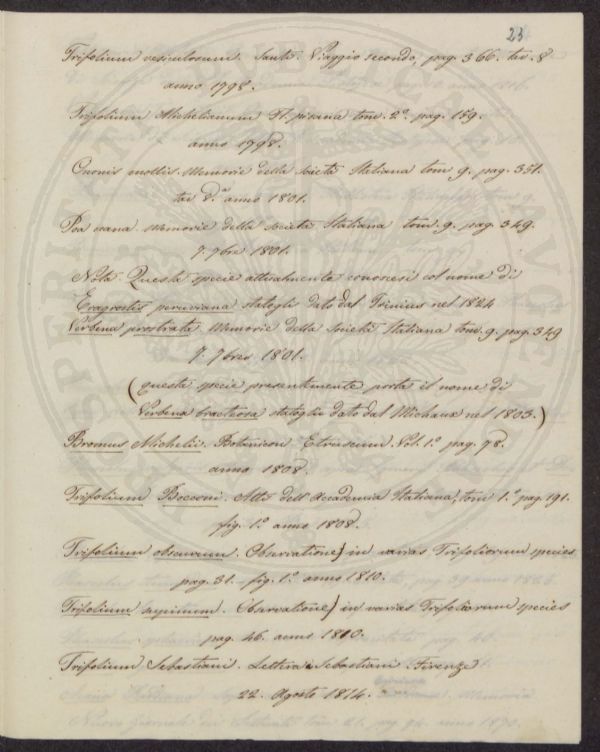 23
Trifolium vesiculosum. Santi. Viaggio secondo, pag. 366. tav. 8
anno 1798.
Trifolium Michelianum Fl. pisana tom. 2.º pag. 159.
anno 1798.
Ononis mollis. Memorie della società Italiana tom 9. pag. 351.
tav d.ª anno 1801.
Poa nana. Memorie della società Italiana tom. 9. pag. 349.
7. 7bre 1801.
Nota. Questa specie attualmente conoscesi col nome di
Eragrostis peruviana statogli dato dal Trinius nel 1824
Verbena prostrata. Memorie della Società Italiana tom. 9. pag. 349
7. 7bres 1801.
(questa specie presentemente porta il nome di
Verbena bracteosa statogli dato dal Michaux nel 1803.)
Bromus Michelii. Botanicon Etruscum. Vol. 1.º pag. 78.
anno 1808.
Trifolium Bocconi. Atti dell'Accademia Italiana, tom 1.º pag. 191.
fig. 1.º anno 1808.
Trifolium obscurum. Observationes in varias Trifoliorum species
pag. 31. fig. 1.º anno 1810.
Trifolium supinum. Observationes in varias Trifoliorum species
pag. 46. anno 1810.
Trifolium Sebastiani. Lettera Sebastiani. Firenze
22. Agosto 1814.